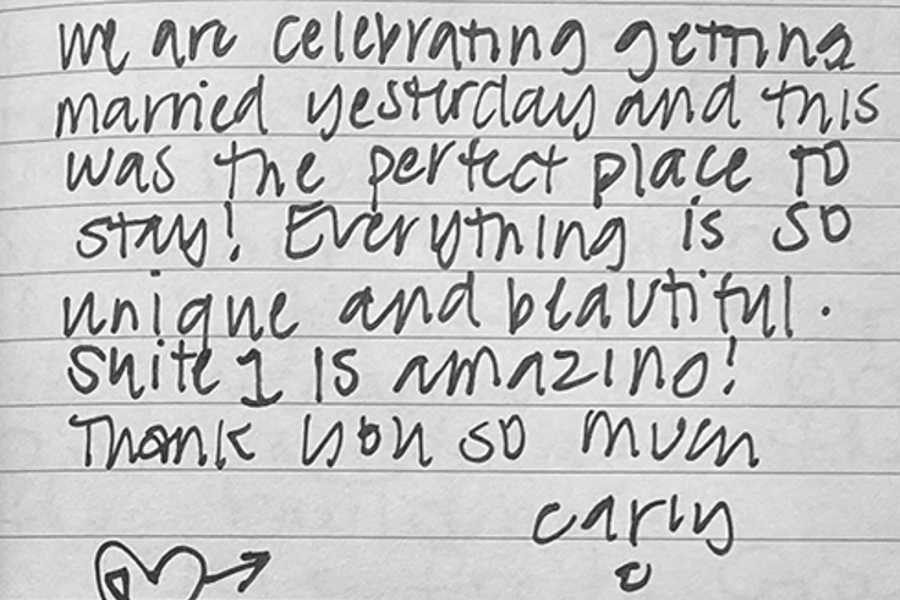 we are celebrating getting
married yesterday and this
was the perfect place to
stay! Everything is so
unique and beautiful.
Suite 1 is amazing!
Thank you so much
carly